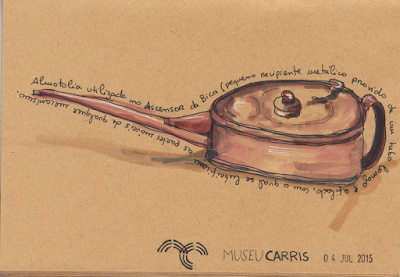 Almotolia utilizada no Ascensor da Bica (pequeno recipiente metálico provido de um tubo longo e afilado, com o qual se lubrificam as partes móveis de qualquer mecanismo.
MUSEU CARRIS 04 JUL 2015